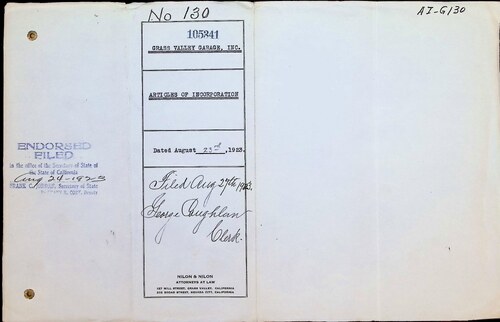 No 130
AI-G130
105241
GRASS VALLEY GARAGE, INC.
ARTICLES OF INCORPORATION
Dated August 23rd, 1923.
ENDORSED
FILED
in the office of the Secretary of State of
the State of California
Aug 24-1923
FRANK C. JORDAN, Secretary of State
Deputy
Filed Aug 27th 1923.
George Coughlan
Clerk.
NILON & NILON
ATTORNEYS AT LAW
MILL STREET, GRASS VALLEY, CALIFORNIA
STREET, NEVADA CITY, CALIFORNIA